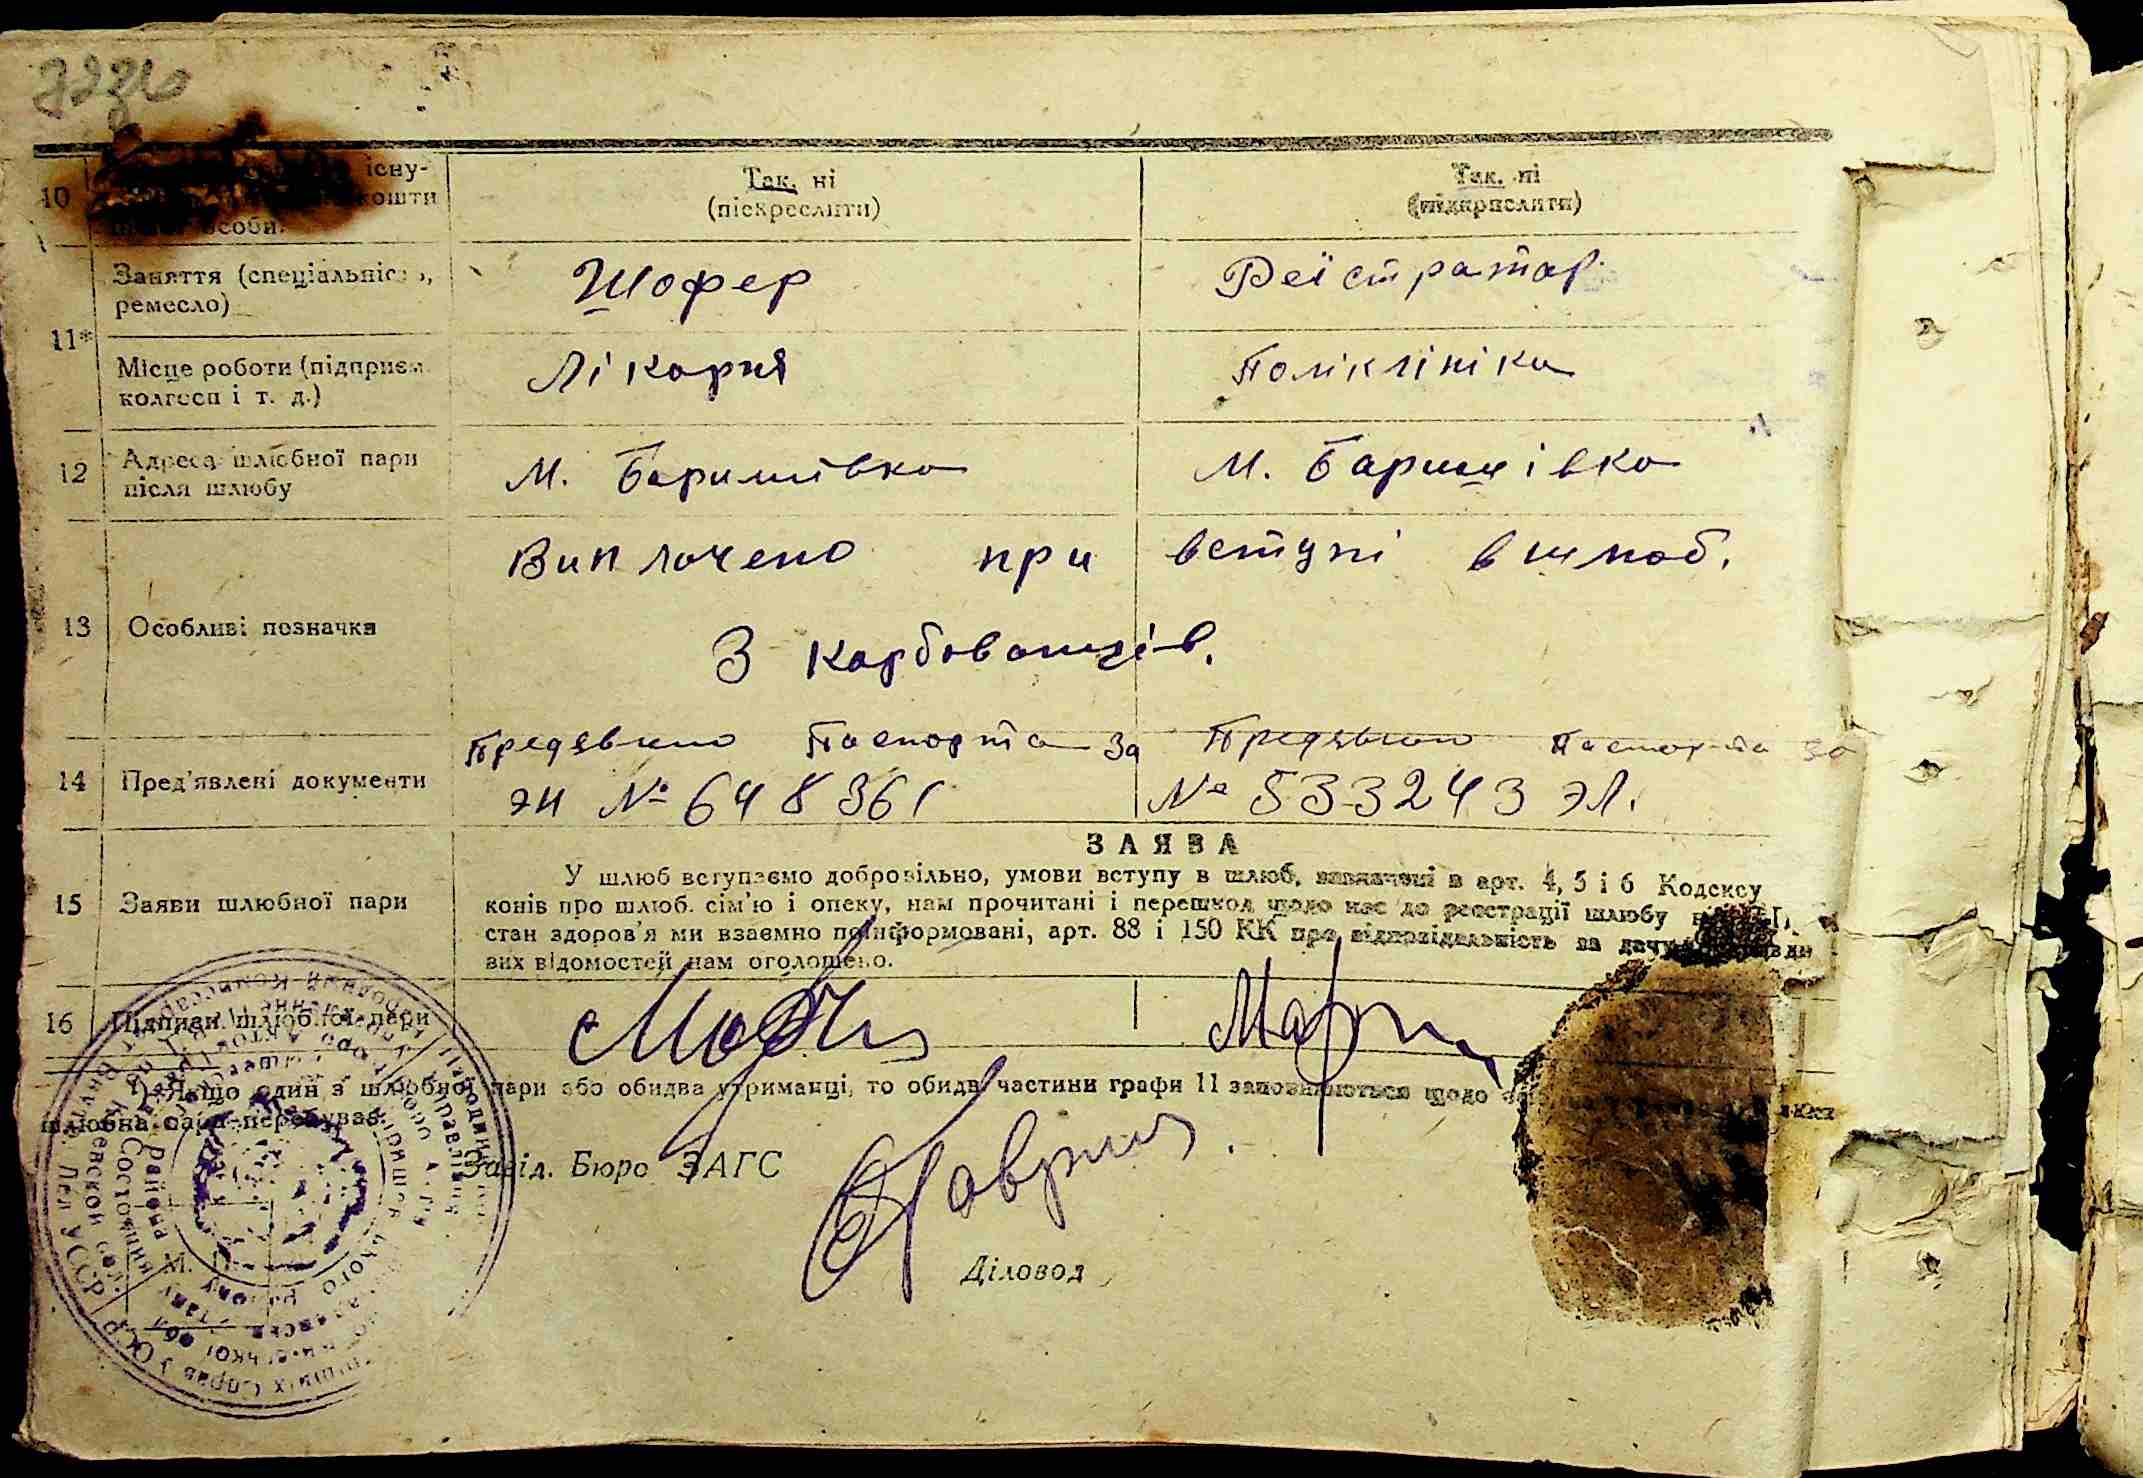 10 існу-
кошти
особи.
Так, ні
(піскреслити)
Так, ні
(підкреслити)
11*
Заняття (спеціальність,
ремесло)
Шофер
Реїстратор
Місце роботи (підприєм.
колгосп і т. д.)
Лікарня
Поликлініка
12 Адреса шлюбної пари
після шлюбу
М. Баришівка
М. Баришівка
13 Особливі позначки
Виплочено при вступі в шлюб.
3 карбованців.
14 Пред'явлені документи
Предявлено Паспорта за
эи № 648361
Предявлено Паспорта за
№ 533243 эл.
15 Заяви шлюбної пари
ЗАЯВА
У шлюб вступаємо добровільно, умови вступу в шлюб, зазначені в арт. 4, 5 і 6 Кодексу
конів про шлюб, сім'ю і опеку, нам прочитані і перешкод щодо нас до реєстрації шлюбу
стан здоров'я ми взаємно поінформовані, арт. 88 і 150 КК про відповідальність за дачу
вих відомостей нам оголошено.
16 Підписи шлюбної пари
*) Якщо один з шлюбної пари або обидва утриманці, то обидві частини графи 11 заповнюються щодо
шлюбна пара перебуває.
Завід. Бюро ЗАГС
М. П.
Діловод